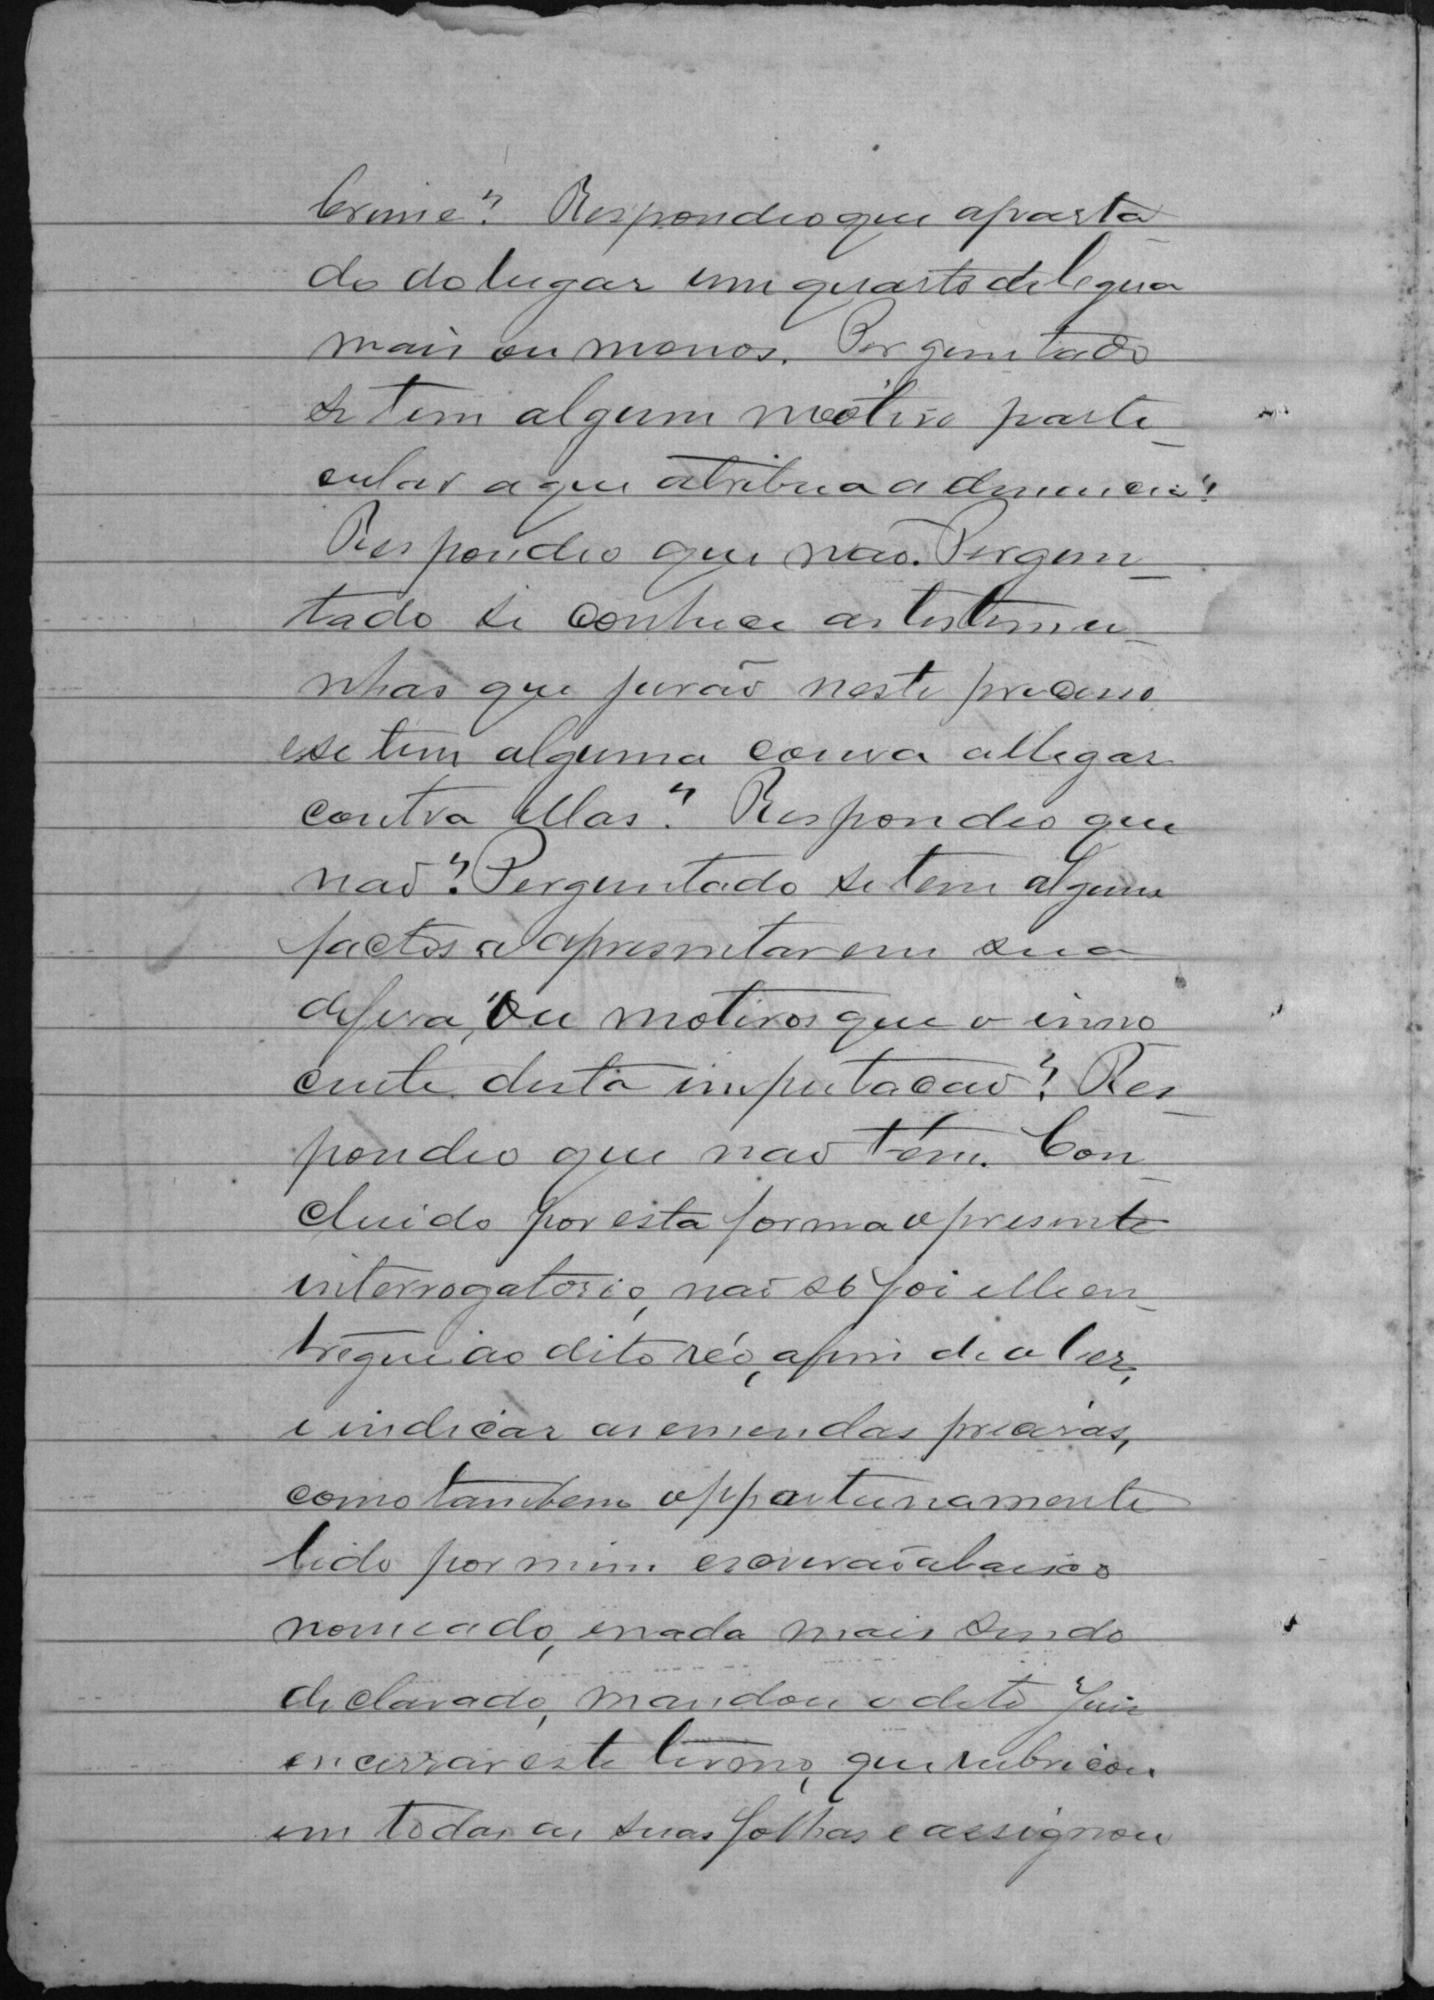 Crime? Respondeo que aparta
do do lugar um quarto de legua
mais ou menos. Perguntado
se tem algum motivo parti_
cular a que atribua a denuncia?
Respondeo que não. Pergun_
tado se conhece as testemu_
nhas que jurão neste processo
e se tem alguma cousa allegar
contra ellas? Respondeo que
não? Perguntado se tem algum
factos a apresentar em sua
defesa, ou motivos que o inno
cente desta imputacão? Res_
pondeo que não tem. Con_
cluido por esta forma o presente
interrogatorio, não só foi elle en_
tregue ao dito réo, afim de o ler,
e indicar as emendas precisas,
como tambem opportunamente
lido por mim escrivão abaixo
nomeado, e nada mais sendo
declarado, mandou o dito Juiz
encerrar este termo, que rubricou
em todas as suas folhas e assignou